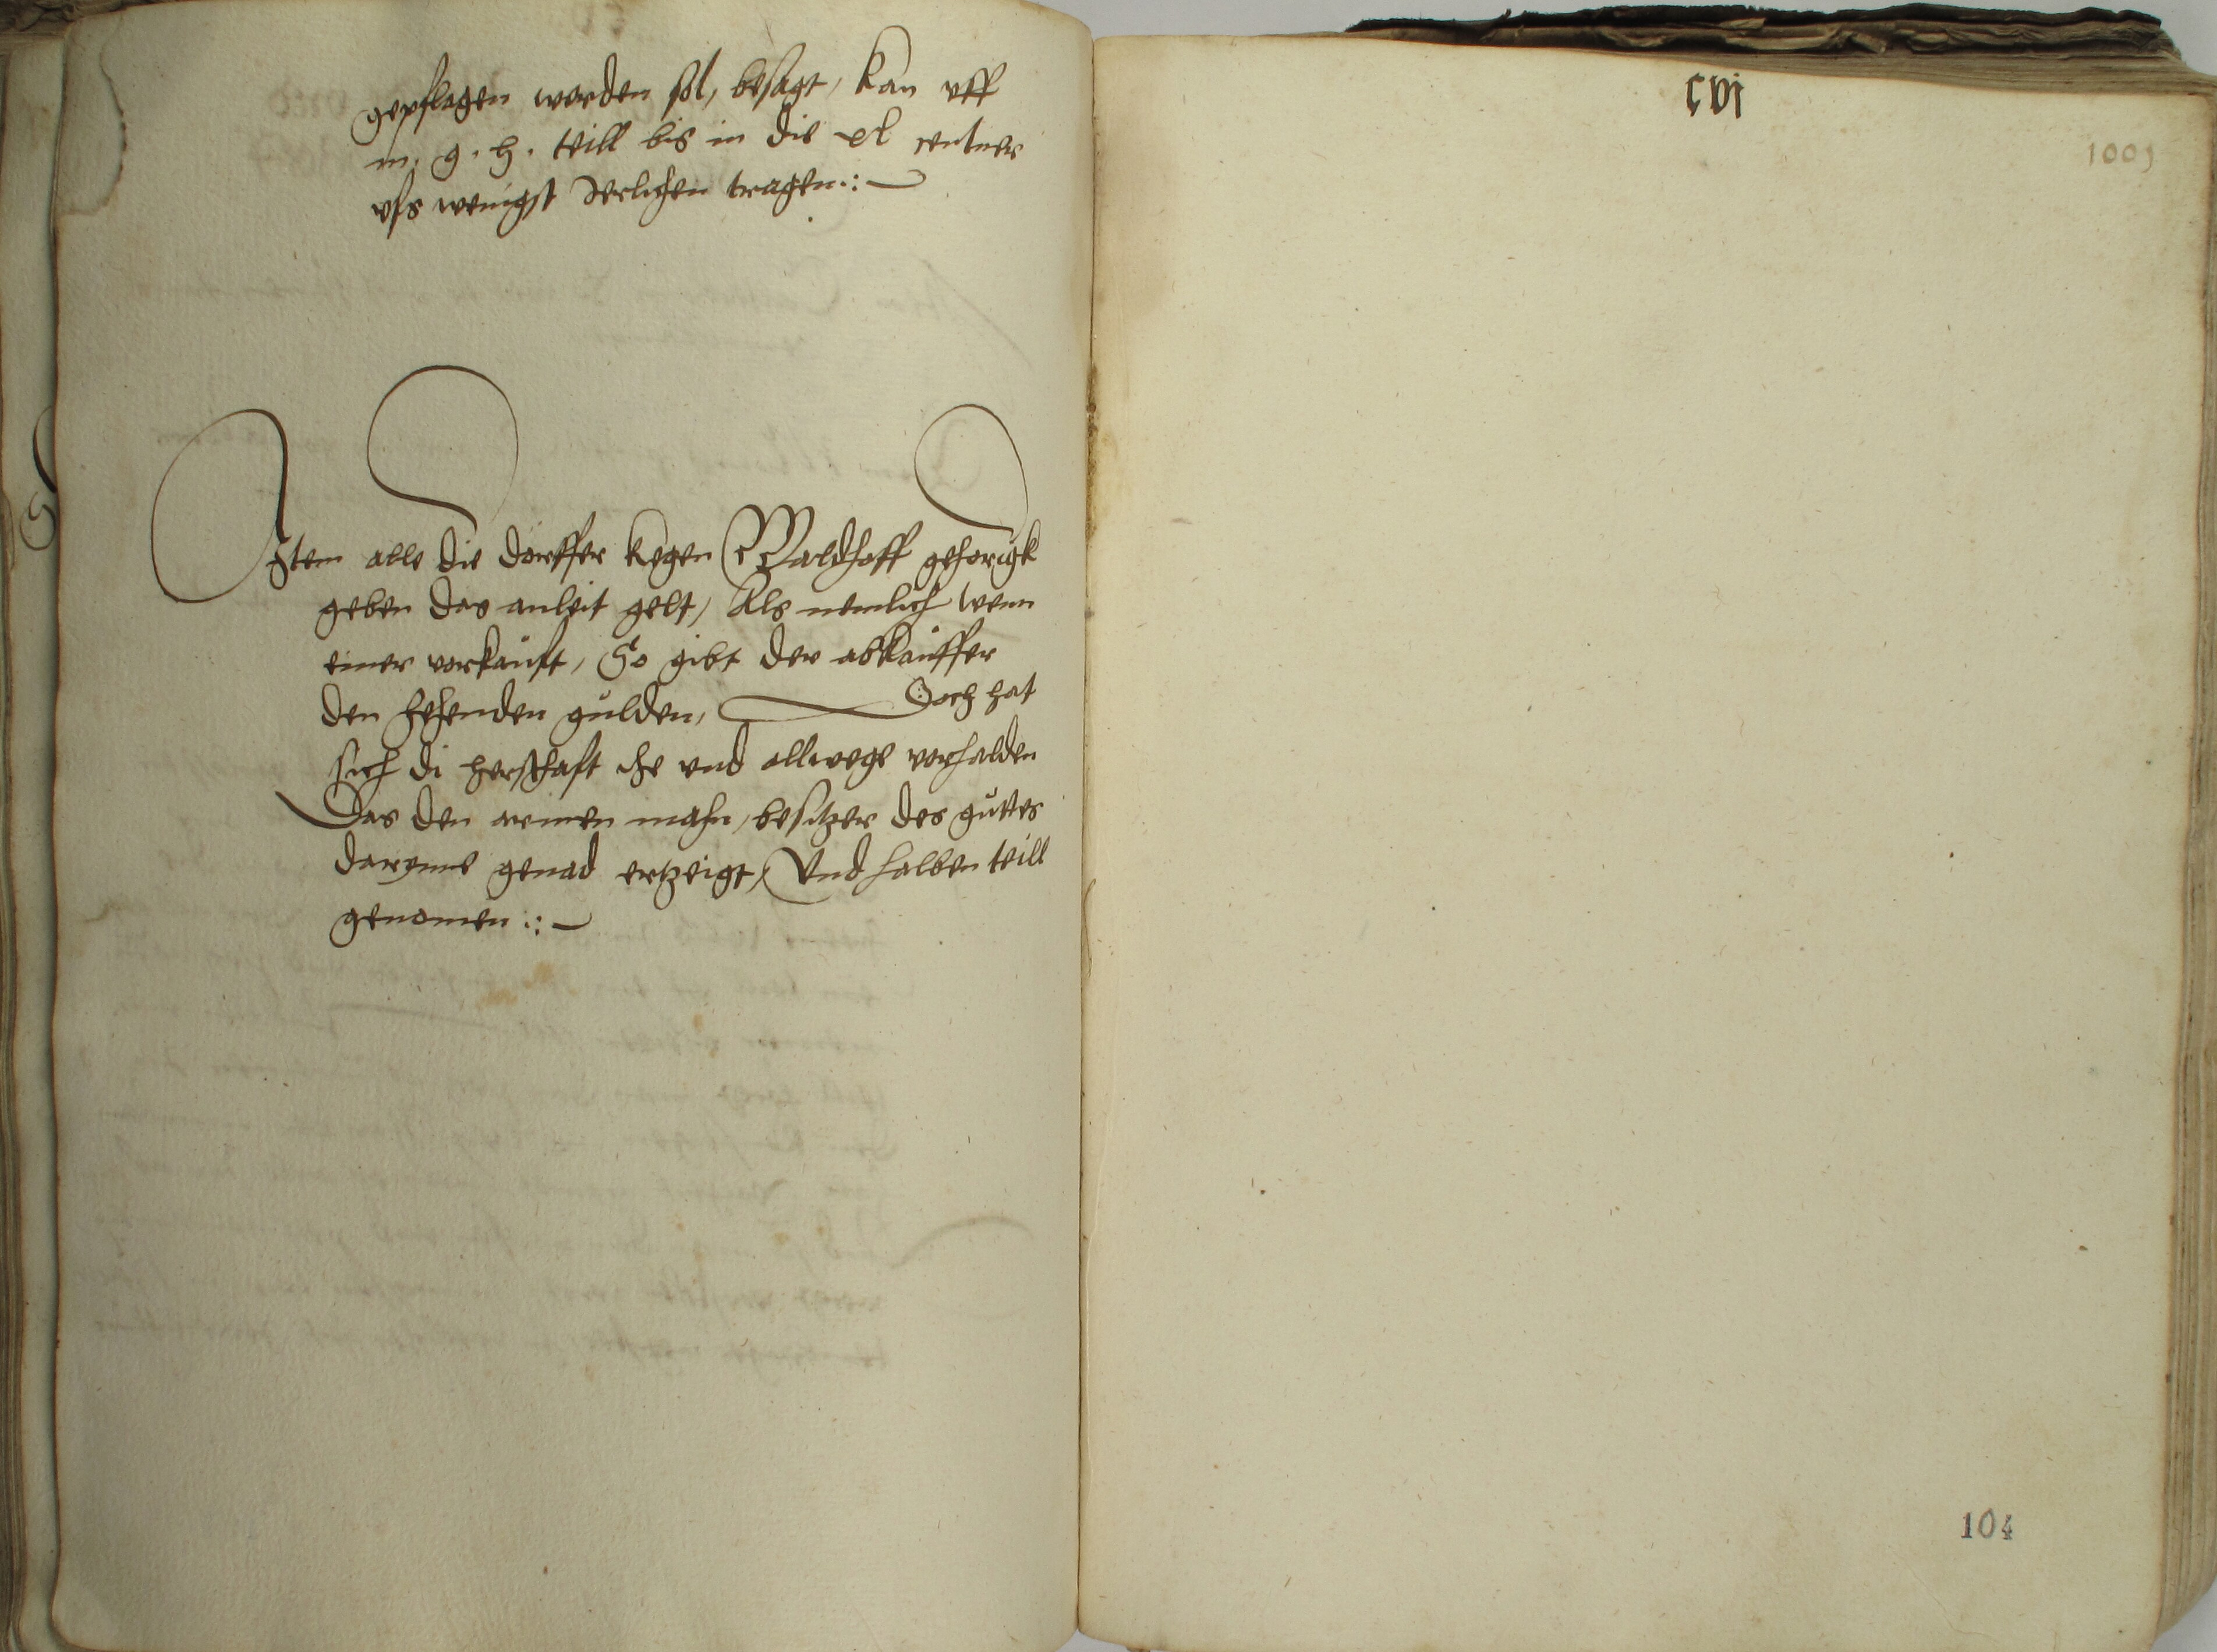 gepflogen werden sol, besagt, kan vff
m. g. h. teill bis in die xl centner
vfs wenigst Jerlichen tragen :—
Jtem alle die dorffer kegen Waldhoff gehorigk
geben das anleit gelt, Als nemlich wenn
einer vorkauft, So gibt der abkauffer
den zehenden gulden, Doch hat
sich di herschaft ehe vnd allwege vorhalden
Das den armen mahn, besitzer des guttes
darynne genad ertzeigt, Vnd halben teill
genomen :—
cvj
104